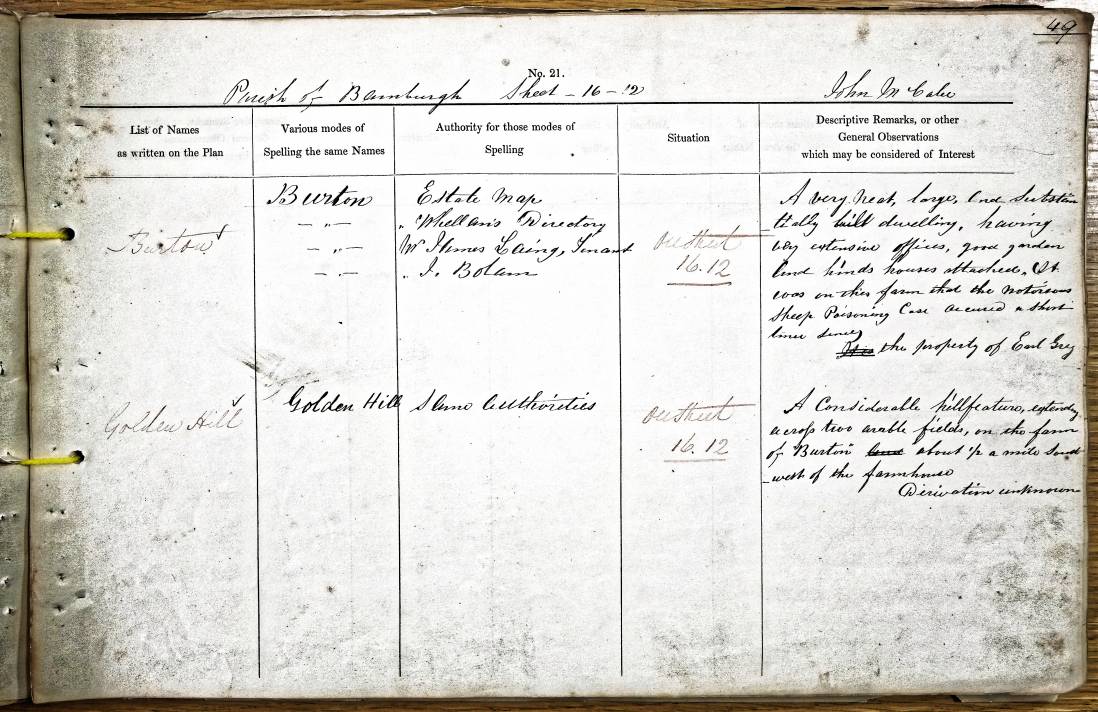 49
No. 21.
Parish of Bamburgh Sheet - 16 - 12 John McCabe
List of Names
as written on the Plan
Various modes of
Spelling the same Names
Authority for those modes of
Spelling
Situation
Descriptive Remarks, or other
General Observations
which may be considered of Interest
Burton
Burton
— „ —
— „ —
— „ —
Estate Map
„ Whellan's Directory
Mr James Laing, Tenant
„ J. Bolam
On Sheet
16.12
A very neat, large, and Substan
tially built dwelling, having
very extensive offices, good garden
and hinds houses attached. It
was on this farm that the notorious
Sheep Poisoning Case occured a short
time since
It is the property of Earl Grey
Golden Hill
Golden Hill
Same authorities
On Sheet
16.12
A Considerable hill feature, extending
across two arable fields, on the farm
of "Burton" and about 1/2 a mile South
west of the farmhouse
Derivation unknown